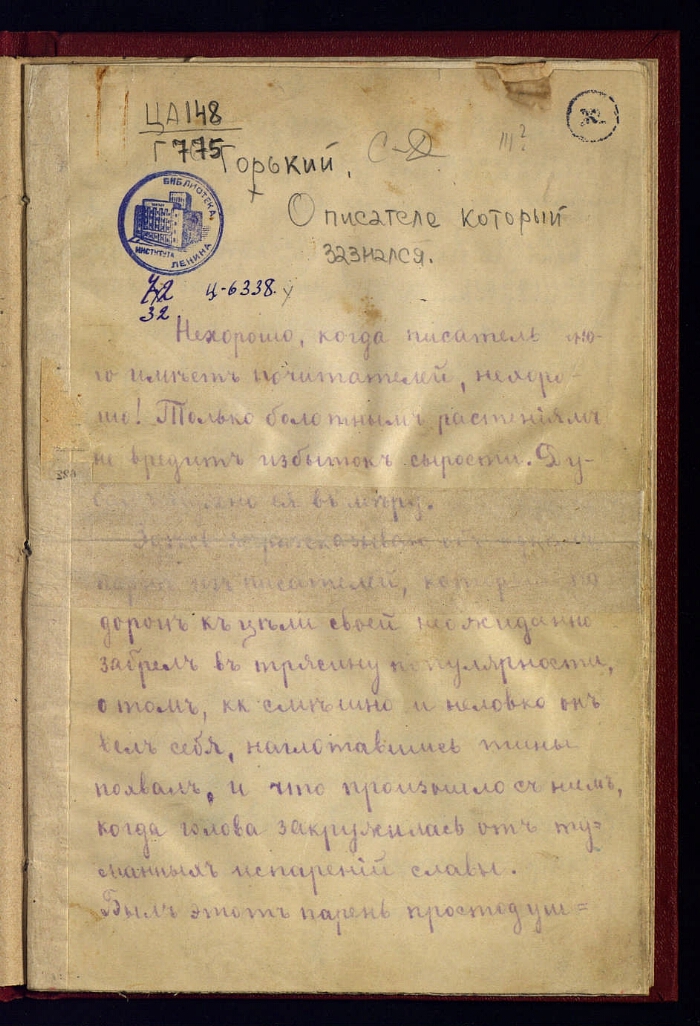 ЦА148
Г775
Горький.
С-Д
III?
О писателе который
зазнался.
БИБЛИОТЕКА
ИНСТИТУТА ЛЕНИНА
42
32
Ц-6338.
Нехорошо, когда писатель мно-
го имѣетъ почитателей, нехоро-
шо! Только болотнымъ растенiямъ
не вредитъ избытокъ сырости. Ду-
нужно ея въ мѣру.
парнѣ изъ писателей, который по
дорогѣ къ цѣли своей неожиданно
забрелъ въ трясину популярности,
о томъ, кк смѣшно и неловко онъ
велъ себя, наглотавшись тины
похвалъ, и что произошло съ нимъ,
когда голова закружилась отъ ту=
манныхъ испаренiй славы.
Былъ этотъ парень простодуш=